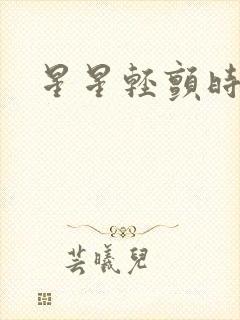 星星輕顫時
芸曦兒